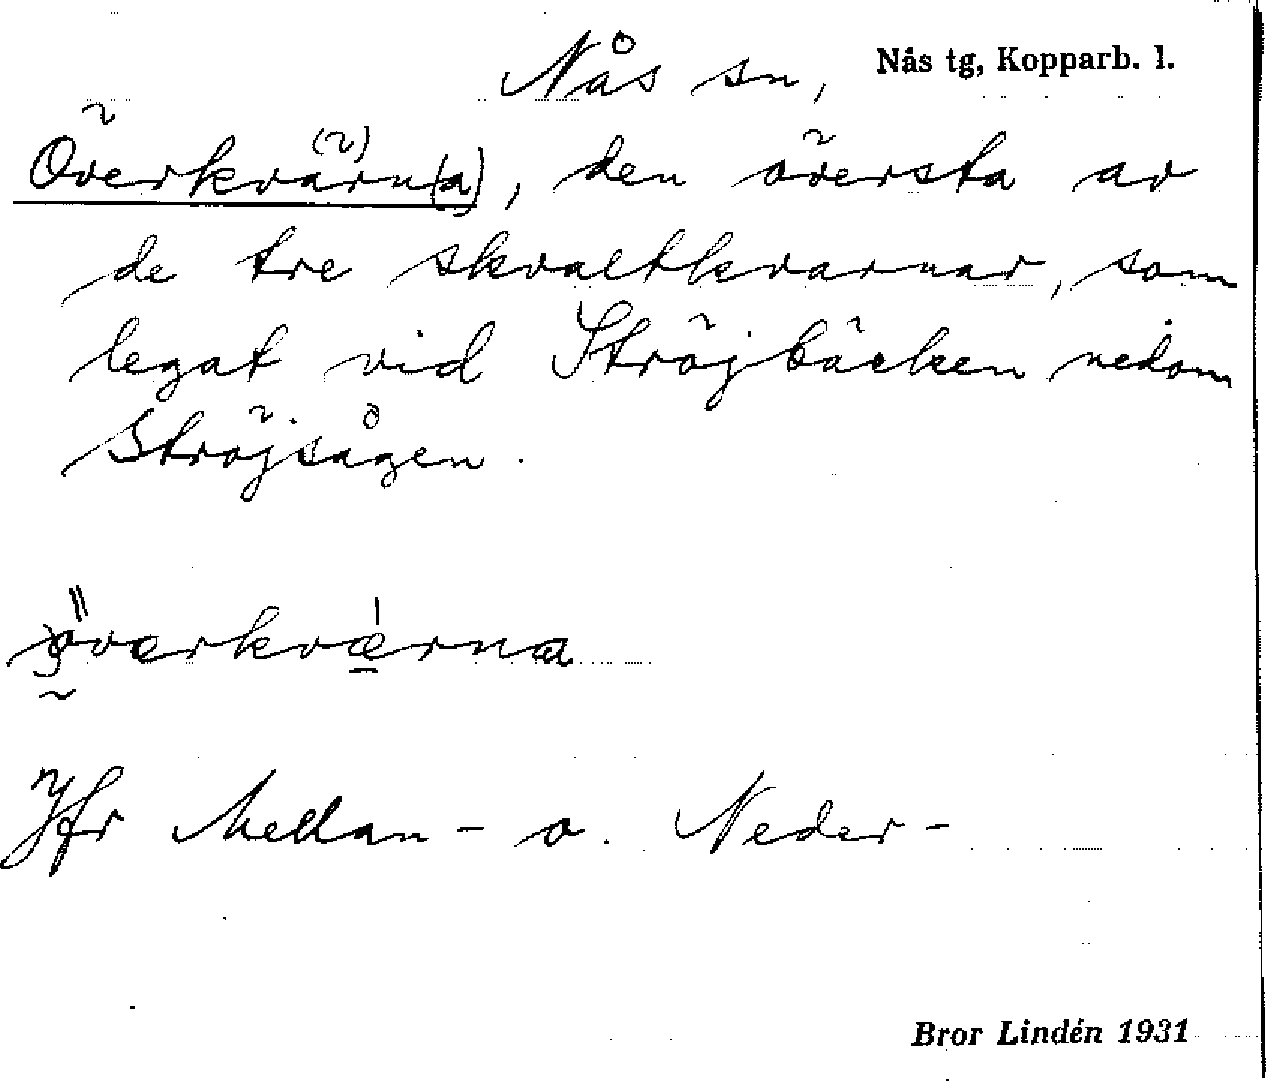 Nås sn, Nås tg, Kopparb. l.
Överkvärn(a), den översta av
de tre skvaltkvarnar, som
legat vid Ströjbäcken nedom
Ströjsågen.
överkværna
Jfr Mellan- o. Neder-
Bror Lindén 1931